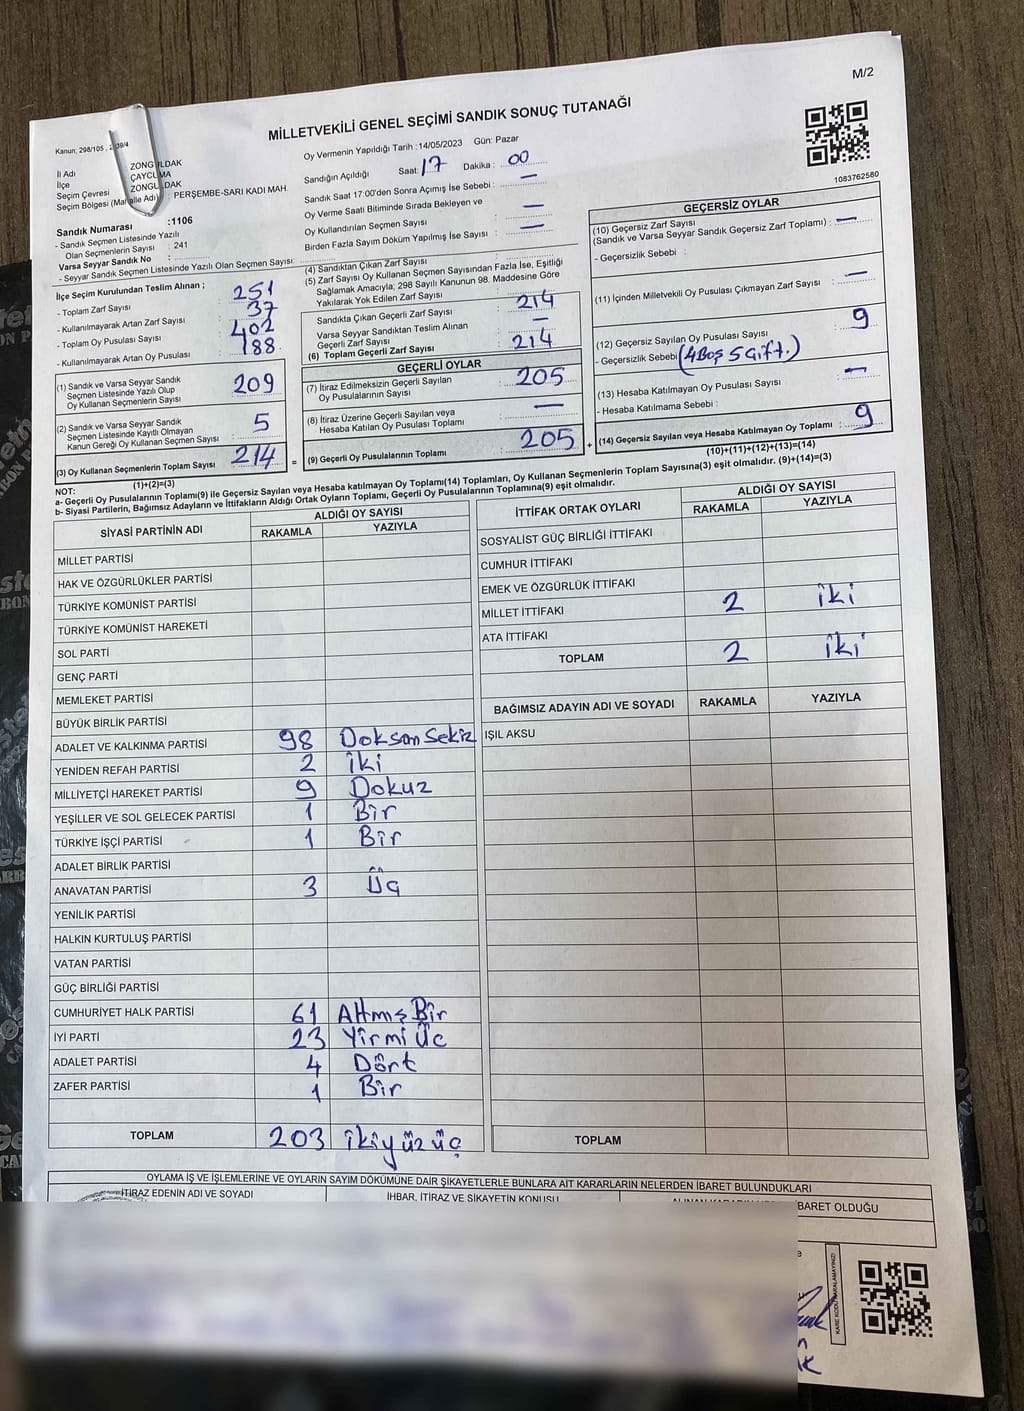 M/2
MİLLETVEKİLİ GENEL SEÇİMİ SANDIK SONUÇ TUTANAĞI
Kanun, 298/105
İl Adı ZONGULDAK
İlçe ÇAYCUMA
Seçim Çevresi ZONGULDAK
Seçim Bölgesi (Mahalle Adı) : PERŞEMBE-SARI KADI MAH.
Sandık Numarası :1106
- Sandık Seçmen Listesinde Yazılı
Olan Seçmenlerin Sayısı : 241
Varsa Seyyar Sandık No :
- Seyyar Sandık Seçmen Listesinde Yazılı Olan Seçmen Sayısı:
Oy Vermenin Yapıldığı Tarih :14/05/2023 Gün: Pazar
Sandığın Açıldığı Saat: 17 Dakika : 00
Sandık Saat 17:00'den Sonra Açımış İse Sebebi : —
Oy Verme Saati Bitiminde Sırada Bekleyen ve
Oy Kullandırılan Seçmen Sayısı : —
Birden Fazla Sayım Döküm Yapılmış İse Sayısı : —
1083762580
İlçe Seçim Kurulundan Teslim Alınan ;
- Toplam Zarf Sayısı : 251
- Kullanılmayarak Artan Zarf Sayısı : 37
- Toplam Oy Pusulası Sayısı : 402
- Kullanılmayarak Artan Oy Pusulası : 188
(1) Sandık ve Varsa Seyyar Sandık
Seçmen Listesinde Yazılı Olup
Oy Kullanan Seçmenlerin Sayısı : 209
(2) Sandık ve Varsa Seyyar Sandık
Seçmen Listesinde Kayıtlı Olmayan
Kanun Gereği Oy Kullanan Seçmen Sayısı : 5
(3) Oy Kullanan Seçmenlerin Toplam Sayısı 214
(1)+(2)=(3)
(4) Sandıktan Çıkan Zarf Sayısı :
(5) Zarf Sayısı Oy Kullanan Seçmen Sayısından Fazla İse, Eşitliği
Sağlamak Amacıyla; 298 Sayılı Kanunun 98. Maddesine Göre
Yakılarak Yok Edilen Zarf Sayısı :
Sandıkta Çıkan Geçerli Zarf Sayısı : 214
Varsa Seyyar Sandıktan Teslim Alınan
Geçerli Zarf Sayısı : —
(6) Toplam Geçerli Zarf Sayısı : 214
GEÇERLİ OYLAR
(7) İtiraz Edilmeksizin Geçerli Sayılan
Oy Pusulalarının Sayısı : 205
(8) İtiraz Üzerine Geçerli Sayılan veya
Hesaba Katılan Oy Pusulası Toplamı : —
= (9) Geçerli Oy Pusulalarının Toplamı : 205
GEÇERSİZ OYLAR
(10) Geçersiz Zarf Sayısı
(Sandık ve Varsa Seyyar Sandık Geçersiz Zarf Toplamı) : —
- Geçersizlik Sebebi :
(11) İçinden Milletvekili Oy Pusulası Çıkmayan Zarf Sayısı : —
(12) Geçersiz Sayılan Oy Pusulası Sayısı : 9
- Geçersizlik Sebebi : (4 Boş 5 Çift.)
(13) Hesaba Katılmayan Oy Pusulası Sayısı : —
- Hesaba Katılmama Sebebi :
+ (14) Geçersiz Sayılan veya Hesaba Katılmayan Oy Toplamı : 9
(10)+(11)+(12)+(13)=(14)
NOT:
a- Geçerli Oy Pusulalarının Toplamı(9) ile Geçersiz Sayılan veya Hesaba katılmayan Oy Toplamı(14) Toplamları, Oy Kullanan Seçmenlerin Toplam Sayısına(3) eşit olmalıdır. (9)+(14)=(3)
b- Siyasi Partilerin, Bağımsız Adayların ve İttifakların Aldığı Ortak Oyların Toplamı, Geçerli Oy Pusulalarının Toplamına(9) eşit olmalıdır.
SİYASİ PARTİNİN ADI ALDIĞI OY SAYISI
RAKAMLA YAZIYLA
MİLLET PARTİSİ
HAK VE ÖZGÜRLÜKLER PARTİSİ
TÜRKİYE KOMÜNİST PARTİSİ
TÜRKİYE KOMÜNİST HAREKETİ
SOL PARTİ
GENÇ PARTİ
MEMLEKET PARTİSİ
BÜYÜK BİRLİK PARTİSİ
ADALET VE KALKINMA PARTİSİ 98 Doksan Sekiz
YENİDEN REFAH PARTİSİ 2 İki
MİLLİYETÇİ HAREKET PARTİSİ 9 Dokuz
YEŞİLLER VE SOL GELECEK PARTİSİ 1 Bir
TÜRKİYE İŞÇİ PARTİSİ 1 Bir
ADALET BİRLİK PARTİSİ
ANAVATAN PARTİSİ 3 Üç
YENİLİK PARTİSİ
HALKIN KURTULUŞ PARTİSİ
VATAN PARTİSİ
GÜÇ BİRLİĞİ PARTİSİ
CUMHURİYET HALK PARTİSİ 61 Altmış Bir
İYİ PARTİ 23 Yirmi Üç
ADALET PARTİSİ 4 Dört
ZAFER PARTİSİ 1 Bir
TOPLAM 203 ikiyüz üç
İTTİFAK ORTAK OYLARI ALDIĞI OY SAYISI
RAKAMLA YAZIYLA
SOSYALİST GÜÇ BİRLİĞİ İTTİFAKI
CUMHUR İTTİFAKI
EMEK VE ÖZGÜRLÜK İTTİFAKI
MİLLET İTTİFAKI 2 iki
ATA İTTİFAKI
TOPLAM 2 iki
BAĞIMSIZ ADAYIN ADI VE SOYADI RAKAMLA YAZIYLA
IŞIL AKSU
TOPLAM
OYLAMA İŞ VE İŞLEMLERİNE VE OYLARIN SAYIM DÖKÜMÜNE DAİR ŞİKAYETLERLE BUNLARA AİT KARARLARIN NELERDEN İBARET BULUNDUKLARI
İTİRAZ EDENİN ADI VE SOYADI İHBAR, İTİRAZ VE ŞİKAYETİN KONUSU İBARET OLDUĞU
KARE KODU KARALAMAYINIZ!